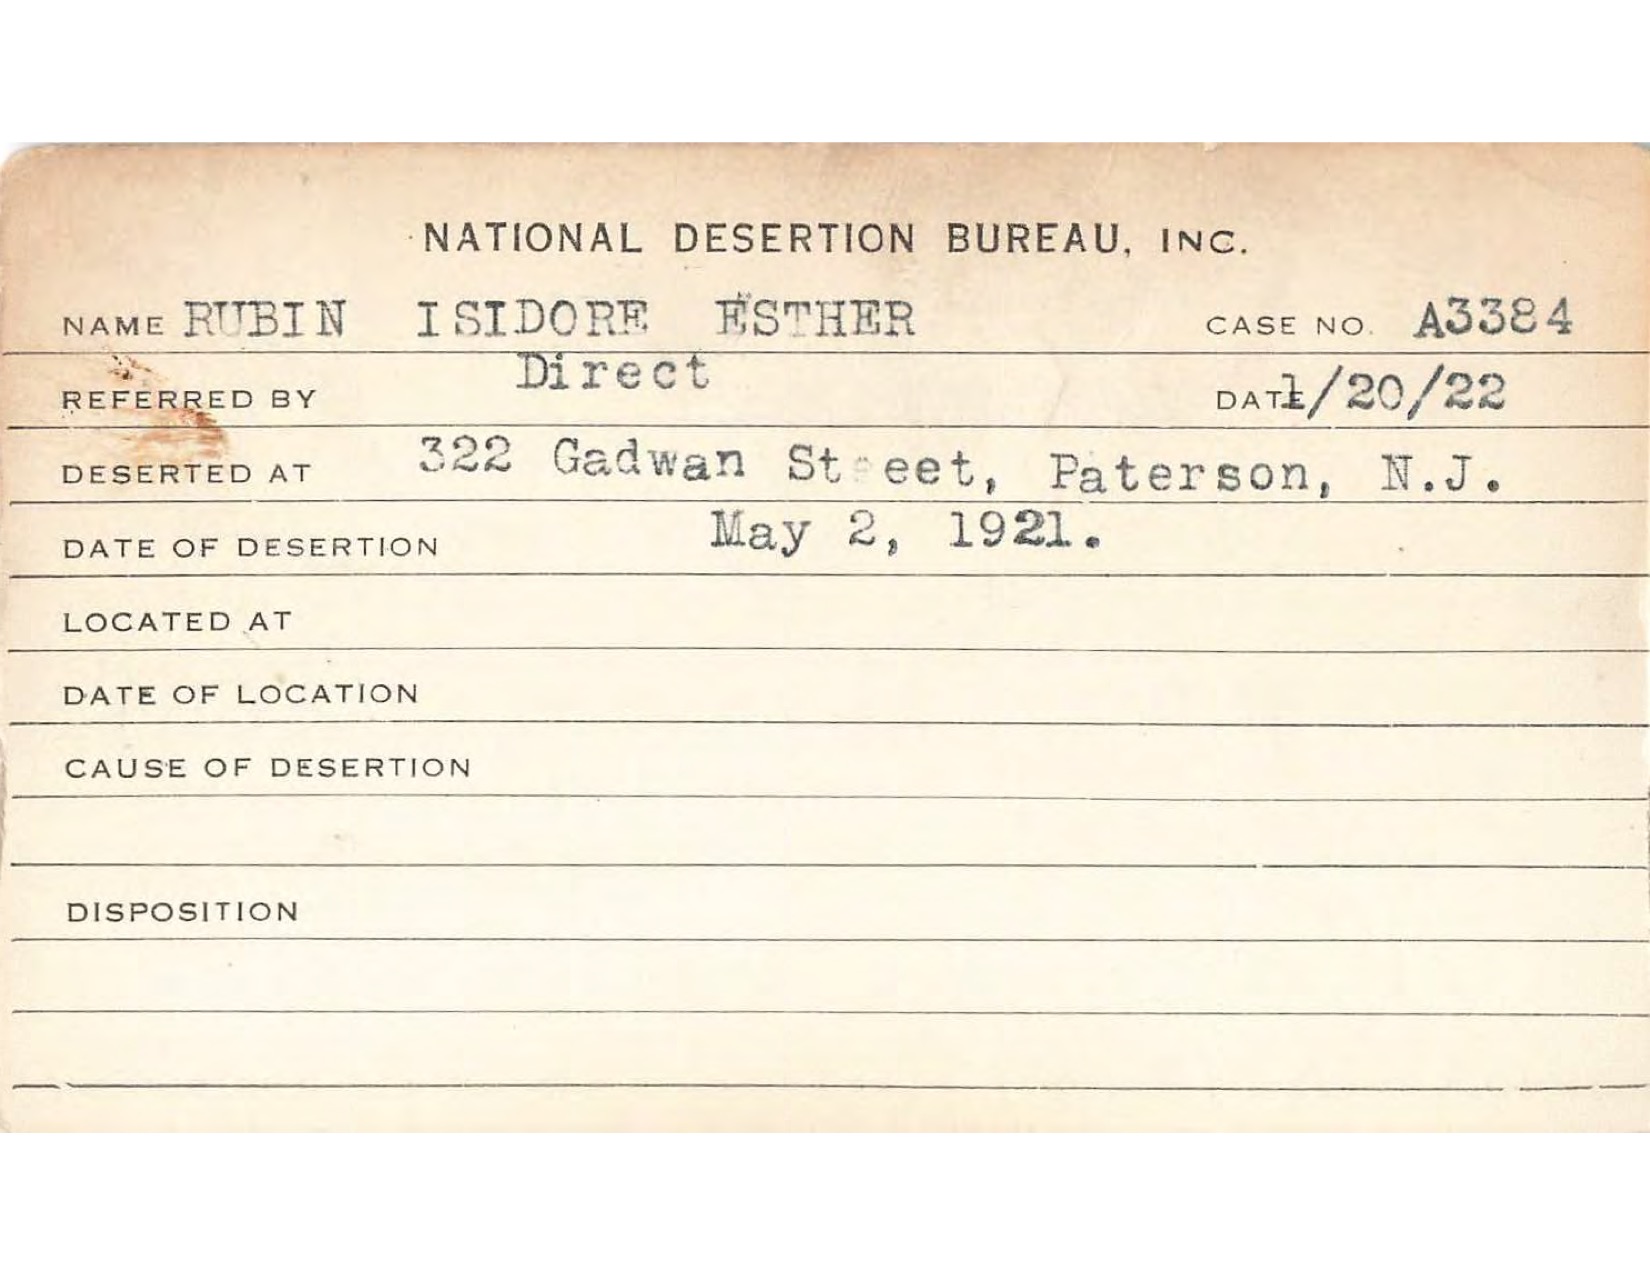 NATIONAL DESERTION BUREAU, INC.
NAME RUBIN ISIDORE ESTHER CASE NO. A3384
REFERRED BY Direct DATE 1/20/22
DESERTED AT 322 Gadwan St eet, Paterson, N.J.
DATE OF DESERTION May 2, 1921.
LOCATED AT
DATE OF LOCATION
CAUSE OF DESERTION
DISPOSITION